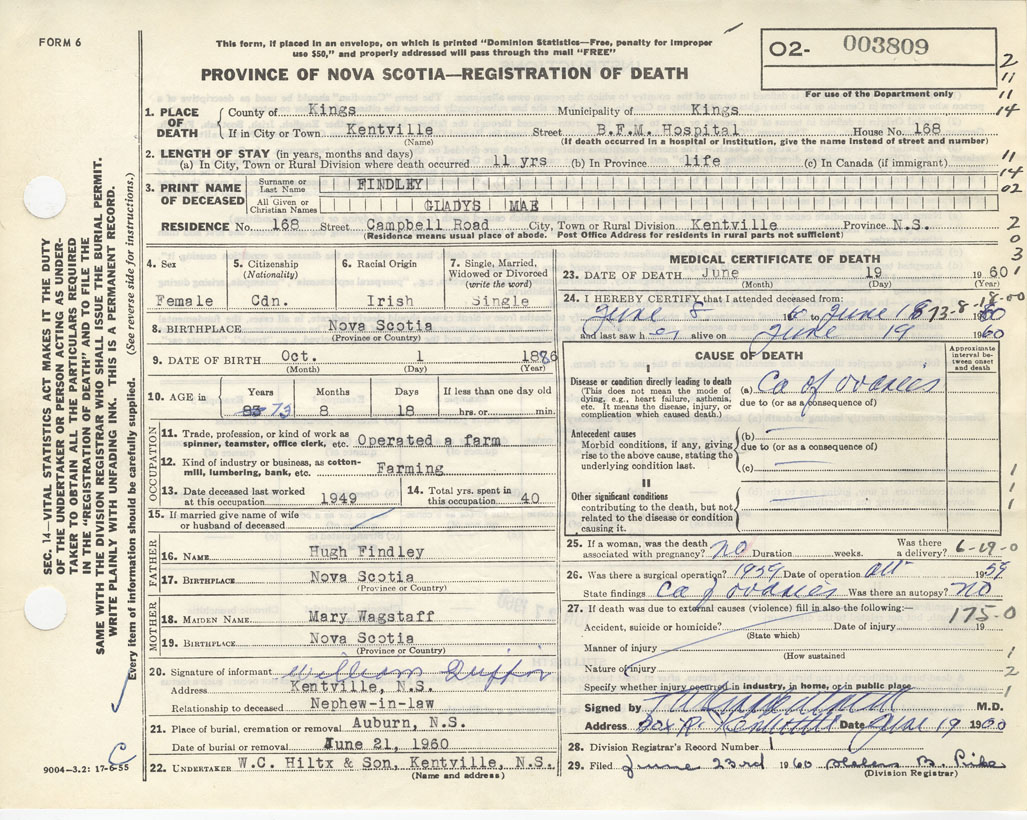 FORM 6
This form, if placed in an envelope, on which is printed "Dominion Statistics—Free, penalty for improper
use $50," and properly addressed will pass through the mail "FREE"
PROVINCE OF NOVA SCOTIA—REGISTRATION OF DEATH
O2- 003809
For use of the Department only
2
11
11
14
1. PLACE OF DEATH County of Kings Municipality of Kings
If in City or Town Kentville Street B.F.M. Hospital House No. 168
(Name) (If death occurred in a hospital or institution, give the name instead of street and number)
2. LENGTH OF STAY (in years, months and days)
(a) In City, Town or Rural Division where death occurred 11 yrs (b) In Province life (c) In Canada (if immigrant)
11
14
02
3. PRINT NAME OF DECEASED Surname or Last Name FINDLEY
All Given or Christian Names GLADYS MAE
RESIDENCE No. 168 Street Campbell Road City, Town or Rural Division Kentville Province N.S.
(Residence means usual place of abode. Post Office Address for residents in rural parts not sufficient)
2
0
3
SEC. 14—VITAL STATISTICS ACT MAKES IT THE DUTY
OF THE UNDERTAKER OR PERSON ACTING AS UNDER-
TAKER TO OBTAIN ALL THE PARTICULARS REQUIRED
IN THE "REGISTRATION OF DEATH" AND TO FILE THE
SAME WITH THE DIVISION REGISTRAR WHO SHALL ISSUE THE BURIAL PERMIT.
WRITE PLAINLY WITH UNFADING INK. THIS IS A PERMANENT RECORD.
Every item of information should be carefully supplied. (See reverse side for instructions.)
4. Sex
Female
5. Citizenship
(Nationality)
Cdn.
6. Racial Origin
Irish
7. Single, Married,
Widowed or Divorced
(write the word)
Single
8. BIRTHPLACE Nova Scotia
(Province or Country)
9. DATE OF BIRTH Oct. 1 1886
(Month) (Day) (Year)
10. AGE in
Years Months Days If less than one day old
83 73 8 18 hrs. or min.
OCCUPATION
11. Trade, profession, or kind of work as
spinner, teamster, office clerk, etc. Operated a farm
12. Kind of industry or business, as cotton-
mill, lumbering, bank, etc. Farming
13. Date deceased last worked
at this occupation 1949
14. Total yrs. spent in
this occupation 40
15. If married give name of wife
or husband of deceased
FATHER
16. NAME Hugh Findley
17. BIRTHPLACE Nova Scotia
(Province or Country)
MOTHER
18. MAIDEN NAME Mary Wagstaff
19. BIRTHPLACE Nova Scotia
(Province or Country)
20. Signature of informant William
Address Kentville, N.S.
Relationship to deceased Nephew-in-law
21. Place of burial, cremation or removal Auburn, N.S.
Date of burial or removal June 21, 1960
22. UNDERTAKER W.C. Hiltx & Son, Kentville, N.S.
(Name and address)
C
9004—3.2: 17-6-55
MEDICAL CERTIFICATE OF DEATH
23. DATE OF DEATH June 19 1960
(Month) (Day) (Year)
1
24. I HEREBY CERTIFY that I attended deceased from:
June 8 to June 73-8-18-00 60
and last saw her alive on June 19 1960
CAUSE OF DEATH
Approximate
interval be-
tween onset
and death
I
Disease or condition directly leading to death
(This does not mean the mode of
dying, e.g., heart failure, asthenia,
etc. It means the disease, injury, or
complication which caused death.)
(a) Ca of ovaries
due to (or as a consequence of)
Antecedent causes
Morbid conditions, if any, giving
rise to the above cause, stating the
underlying condition last.
(b)
due to (or as a consequence of)
(c)
II
Other significant conditions
contributing to the death, but not
related to the disease or condition
causing it.
1
1
1
25. If a woman, was the death
associated with pregnancy? no Duration weeks. Was there
a delivery? 6-19-0
26. Was there a surgical operation? 1959 Date of operation 1959
State findings Ca of ovaries Was there an autopsy? no
27. If death was due to external causes (violence) fill in also the following:—
175-0
Accident, suicide or homicide? Date of injury 19
(State which)
Manner of injury
(How sustained
Nature of injury
Specify whether injury occurred in industry, in home, or in public place
1
2
Signed by M.D.
Address Box Kentville Date June 19 1960
28. Division Registrar's Record Number 1
29. Filed June 23rd 1960 Helen B. Pike
(Division Registrar)